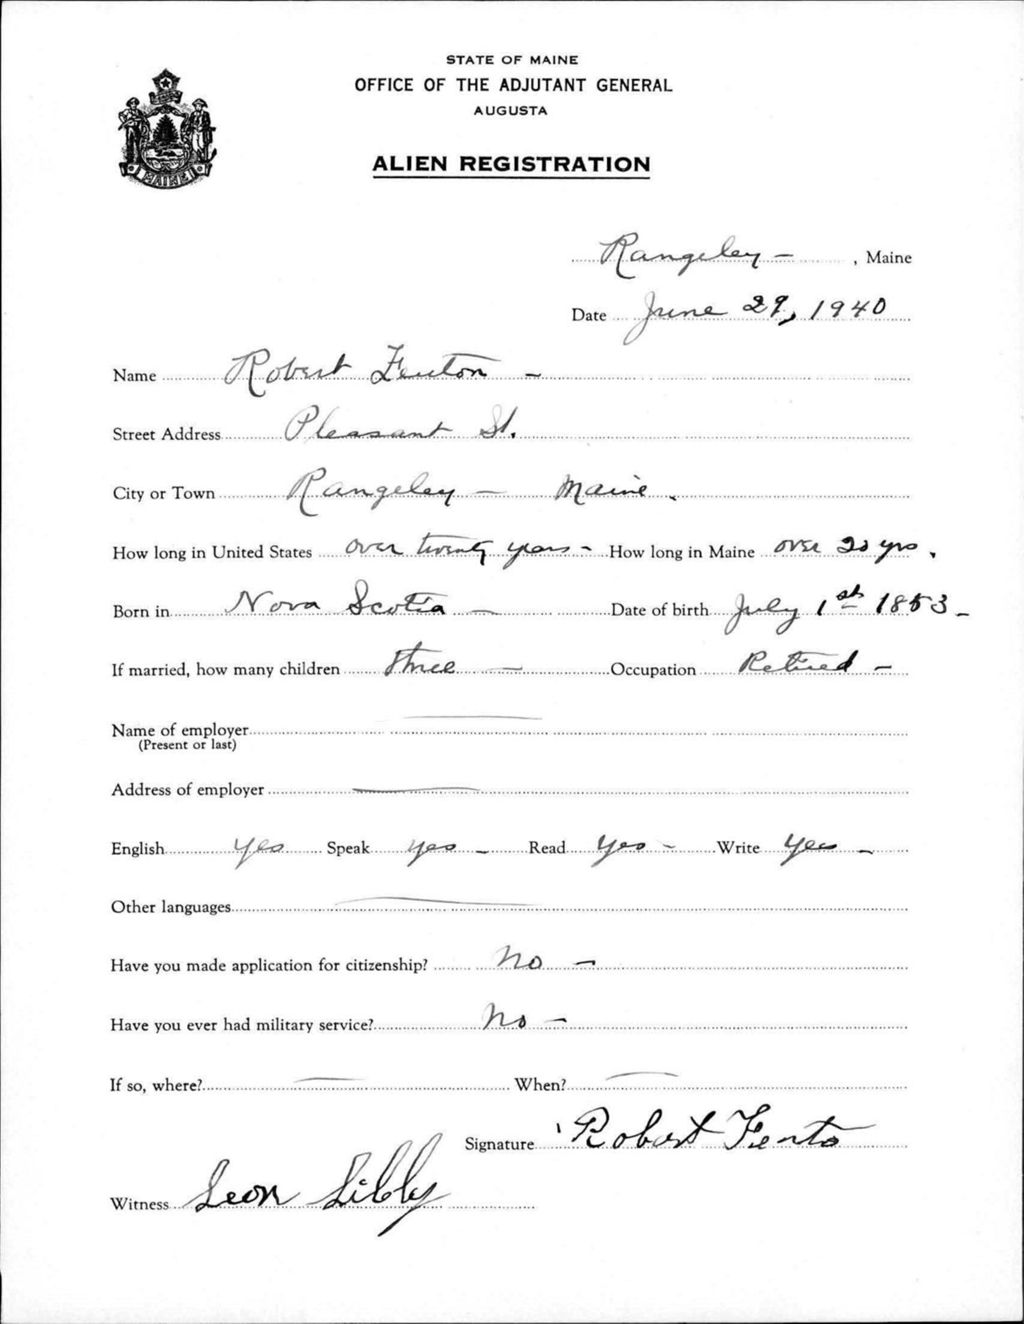 STATE OF MAINE
OFFICE OF THE ADJUTANT GENERAL
AUGUSTA
ALIEN REGISTRATION
MAINE
Rangeley - , Maine
Date June 29, 1940
Name Robert Fenton -
Street Address Pleasant St.
City or Town Rangeley - Maine.
How long in United States over twenty years - How long in Maine over 20 yrs.
Born in Nova Scotia - Date of birth July 1st 1853 -
If married, how many children three - Occupation Retired -
Name of employer
(Present or last)
Address of employer
English yes Speak yes - Read yes - Write yes -
Other languages
Have you made application for citizenship? No -
Have you ever had military service? No -
If so, where? When?
Signature Robert Fento
Witness Leon Libby